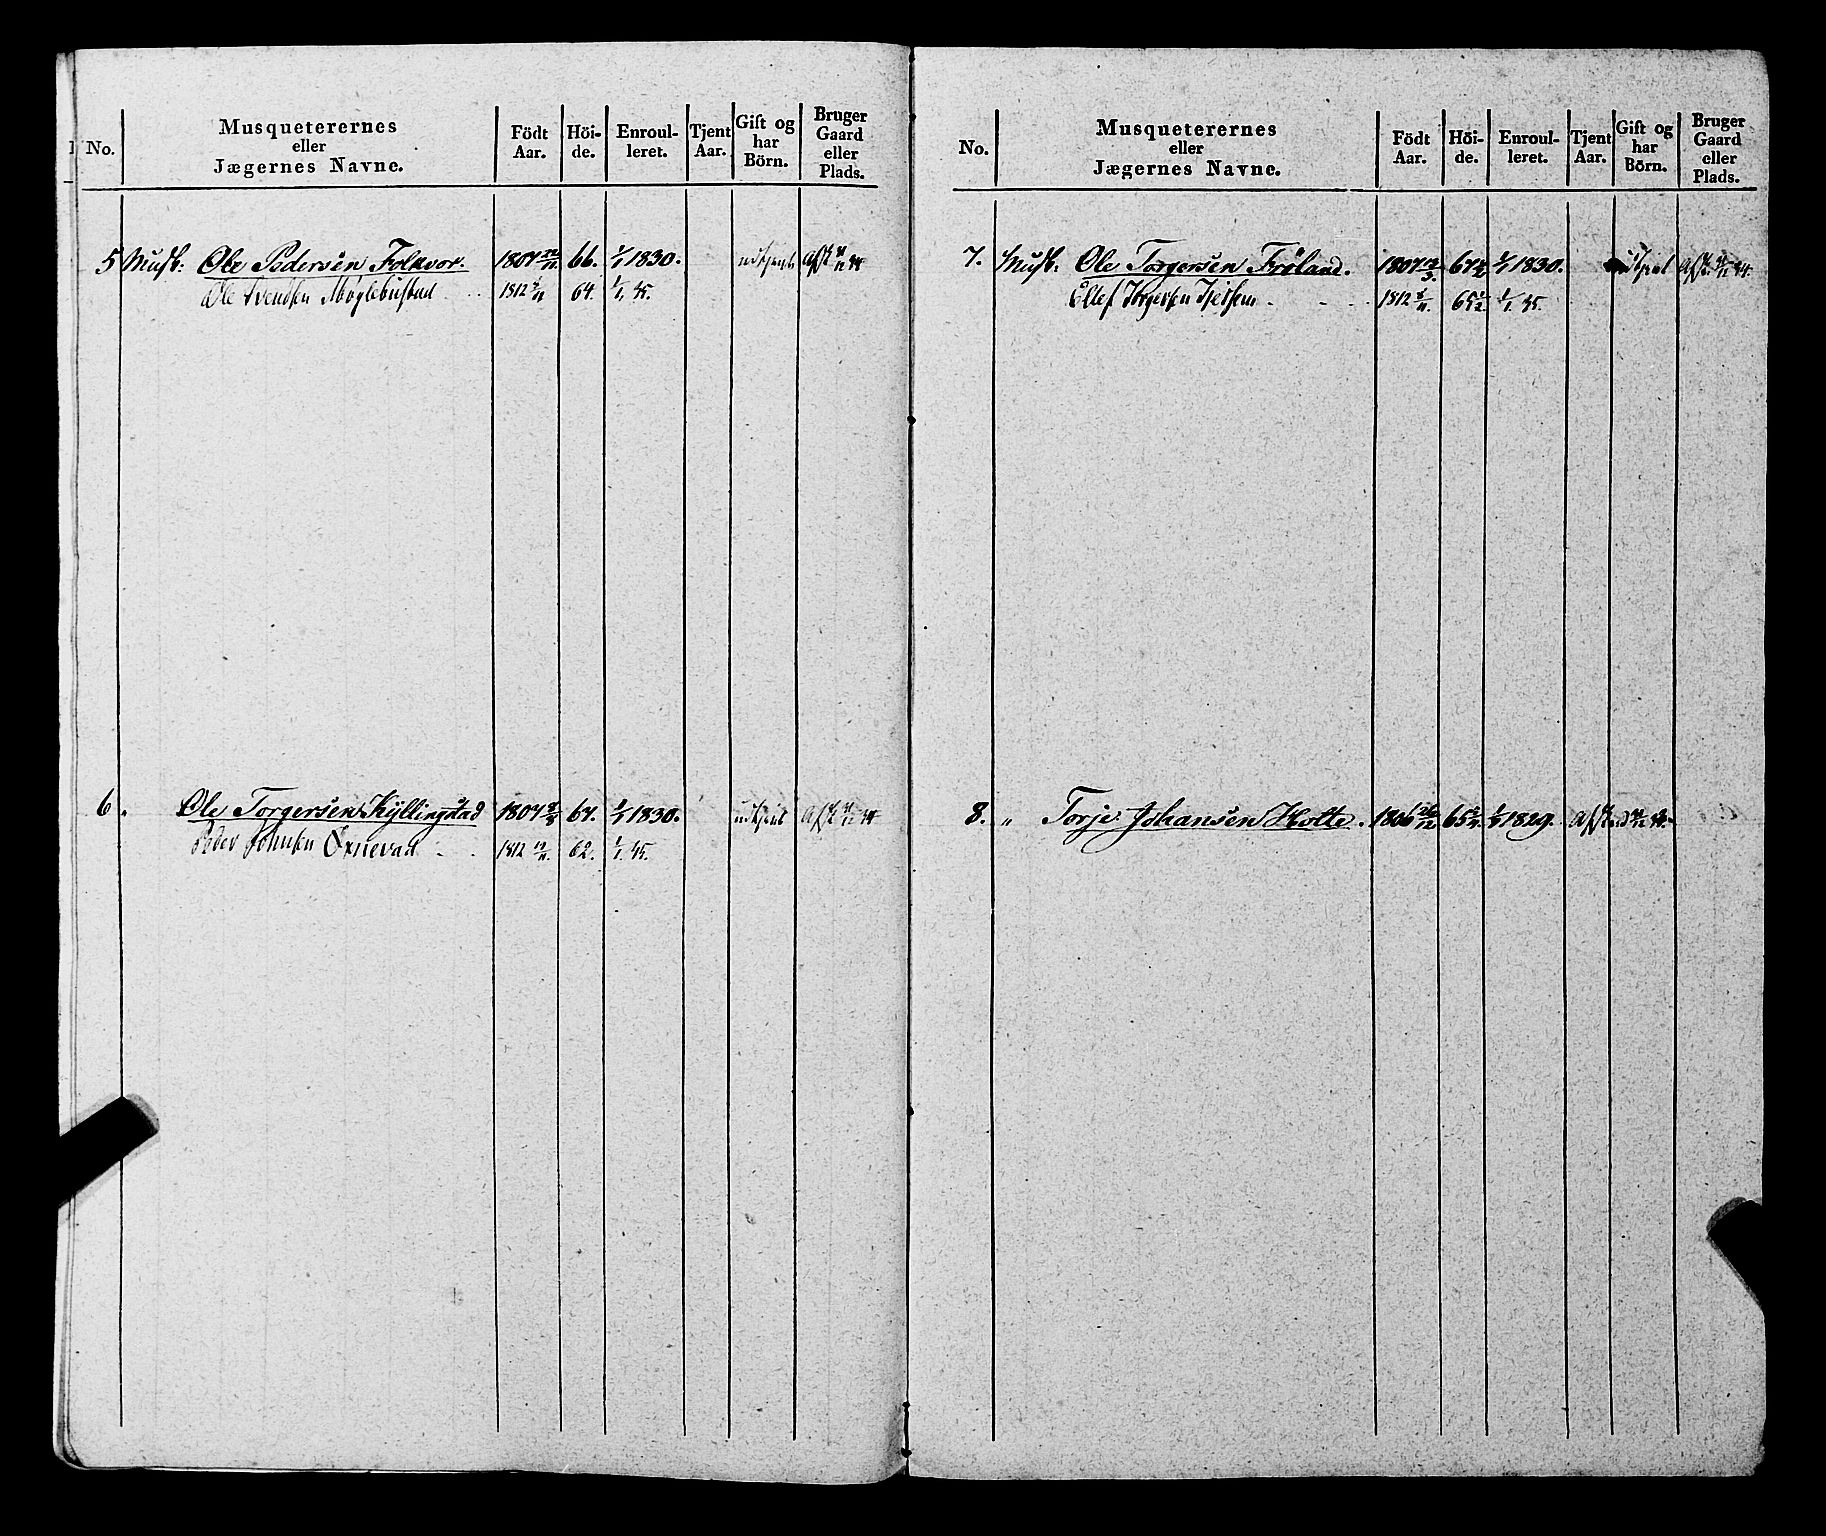 No.
Musqueterernes
eller
Jægernes Navne.
Födt
Aar.
Höi-
de.
Enroul-
leret.
Tjent
Aar.
Gift og
har
Börn.
Bruger
Gaard
eller
Plads.
5 Musq: Ole Pedersen Folkvor. 1807 66. 1/7 1830. udtjent Afsk.
Ole Svendsen Møglebustad 1812 64. 1/1. 45.
6 " Ole Torgersen Kyllingstad 1807 67. 1/7 1830. udtjent Afsk.
Peder Johnsen Øxnevad 1812 62. 1/1. 45.
No.
Musqueterernes
eller
Jægernes Navne.
Födt
Aar.
Höi-
de.
Enroul-
leret.
Tjent
Aar.
Gift og
har
Börn.
Bruger
Gaard
eller
Plads.
7. Musq: Ole Torgersen Fröland. 1807 1/7 1830. udtjent Afsk.
Ellef Torgersen 1812 65 1/2 1/1. 45.
8. " Torje Johansen Holte. 1806 65 1/7 1829. Afsked